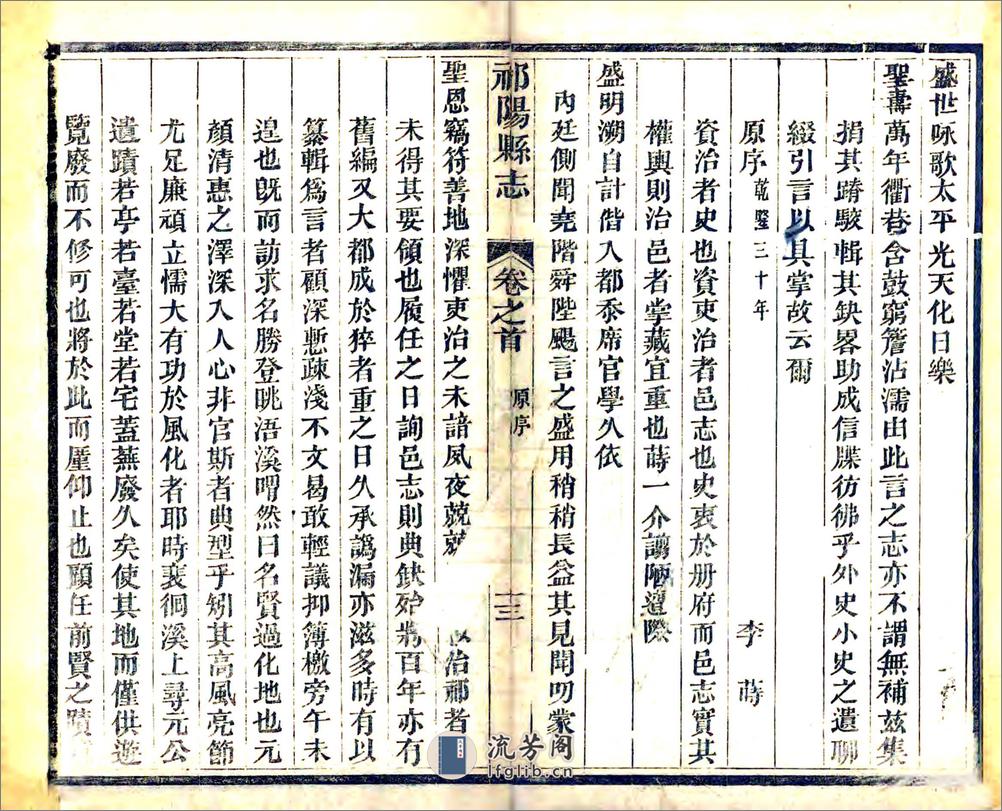 盛世咏歌太平光天化日樂
聖壽萬年衢巷含鼓窮簷沾濡由此言之志亦不謂無補茲集
捐其踳駁輯其缺畧助成信牒彷彿乎外史小史之遺聊
綴引言以具掌故云爾
原序乾隆三十年 李蒔
資治者史也資吏治者邑志也史裒於册府而邑志實其
權輿則治邑者掌藏宜重也蒔一介譾陋遭際
盛明溯自計偕入都忝席官學久依
內廷側聞堯階舜陛颺言之盛用稍稍長益其見聞叨蒙
祁陽縣志 卷之首 原序 三
聖恩竊符善地深懼吏治之未諳夙夜兢兢 治祁者
未得其要領也履任之日詢邑志則典缺殆將百年亦有
舊編又大都成於猝者重之日久承譌漏亦滋多時有以
纂輯爲言者顧深慙疎淺不文曷敢輕議抑簿檄旁午未
遑也旣而訪求名勝登眺浯溪喟然曰名賢過化地也元
顏清惠之澤深入人心非官斯者典型乎矧其高風亮節
尤足廉頑立懦大有功於風化者耶時裵徊溪上尋元公
遺蹟若亭若臺若堂若宅蓋蕪廢久矣使其地而僅供遊
覽廢而不修可也將於此而厪仰止也頋任前賢之蹟
流芳阁
lfglib.cn